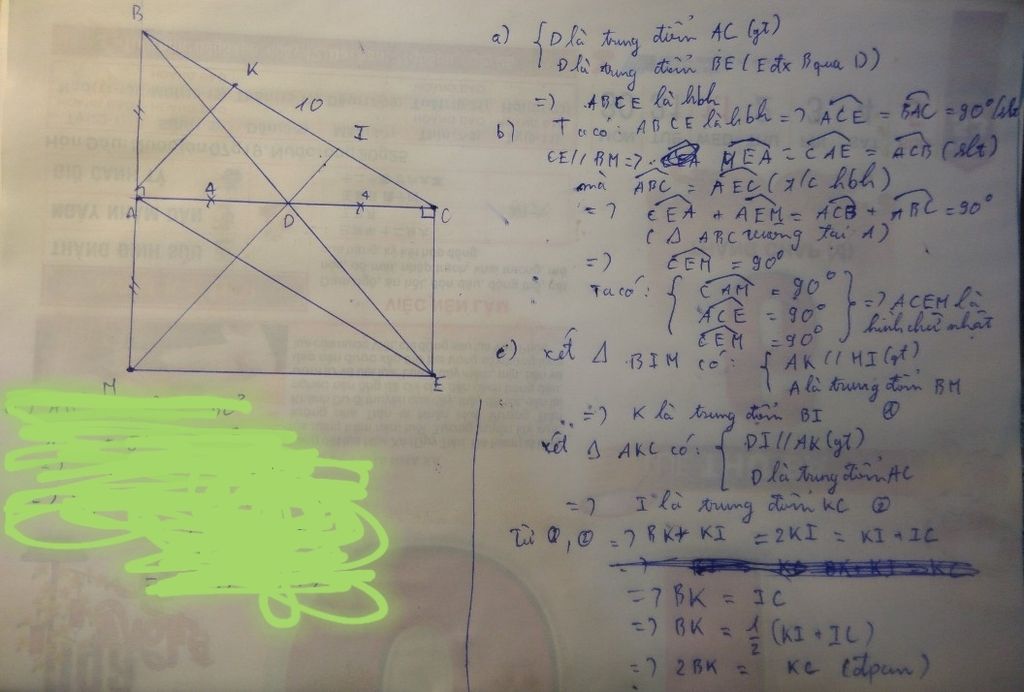 B
K
10
I
A
4
4
D
C
M
E
a) { D là trung điểm AC (gt)
D là trung điểm BE (E đx B qua D)
=> ABCE là hbh
b) Ta có: ABCE là hbh => ACE = BAC = 90° (slt)
CE // BM => MEA = CAE = ACB (slt)
mà ABC = AEC (t/c hbh)
=> CEA + AEM = ACB + ABC = 90°
(Δ ABC vuông tại A)
=> CEM = 90°
Ta có: { CAM = 90°
ACE = 90°
CEM = 90° } => ACEM là hình chữ nhật
c) xét Δ BIM có: { AK // MI (gt)
A là trung điểm BM
=> K là trung điểm BI ①
xét Δ AKC có: { DI // AK (gt)
D là trung điểm AC
=> I là trung điểm KC ②
Từ ①, ② => BK + KI = 2KI = KI + IC
=> BK = IC
=> BK = 1/2 (KI + IC)
=> 2BK = KC (đpcm)